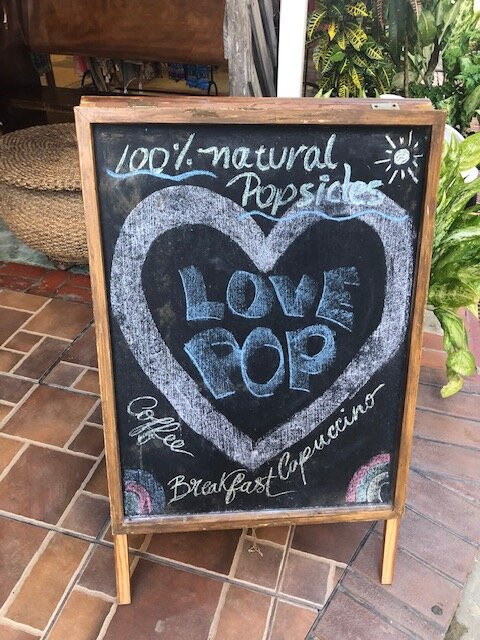 100% natural
Popsicles
LOVE
POP
Coffee
Breakfast Capuccino